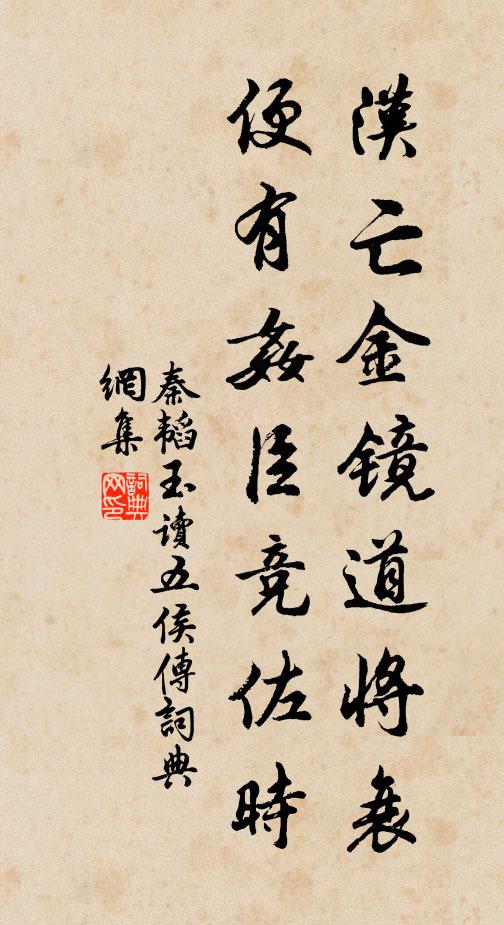 漢亡金鏡道將衰
便有姦臣竞佐時
秦韜玉讀五侯傳詞典
網集
詞典網印